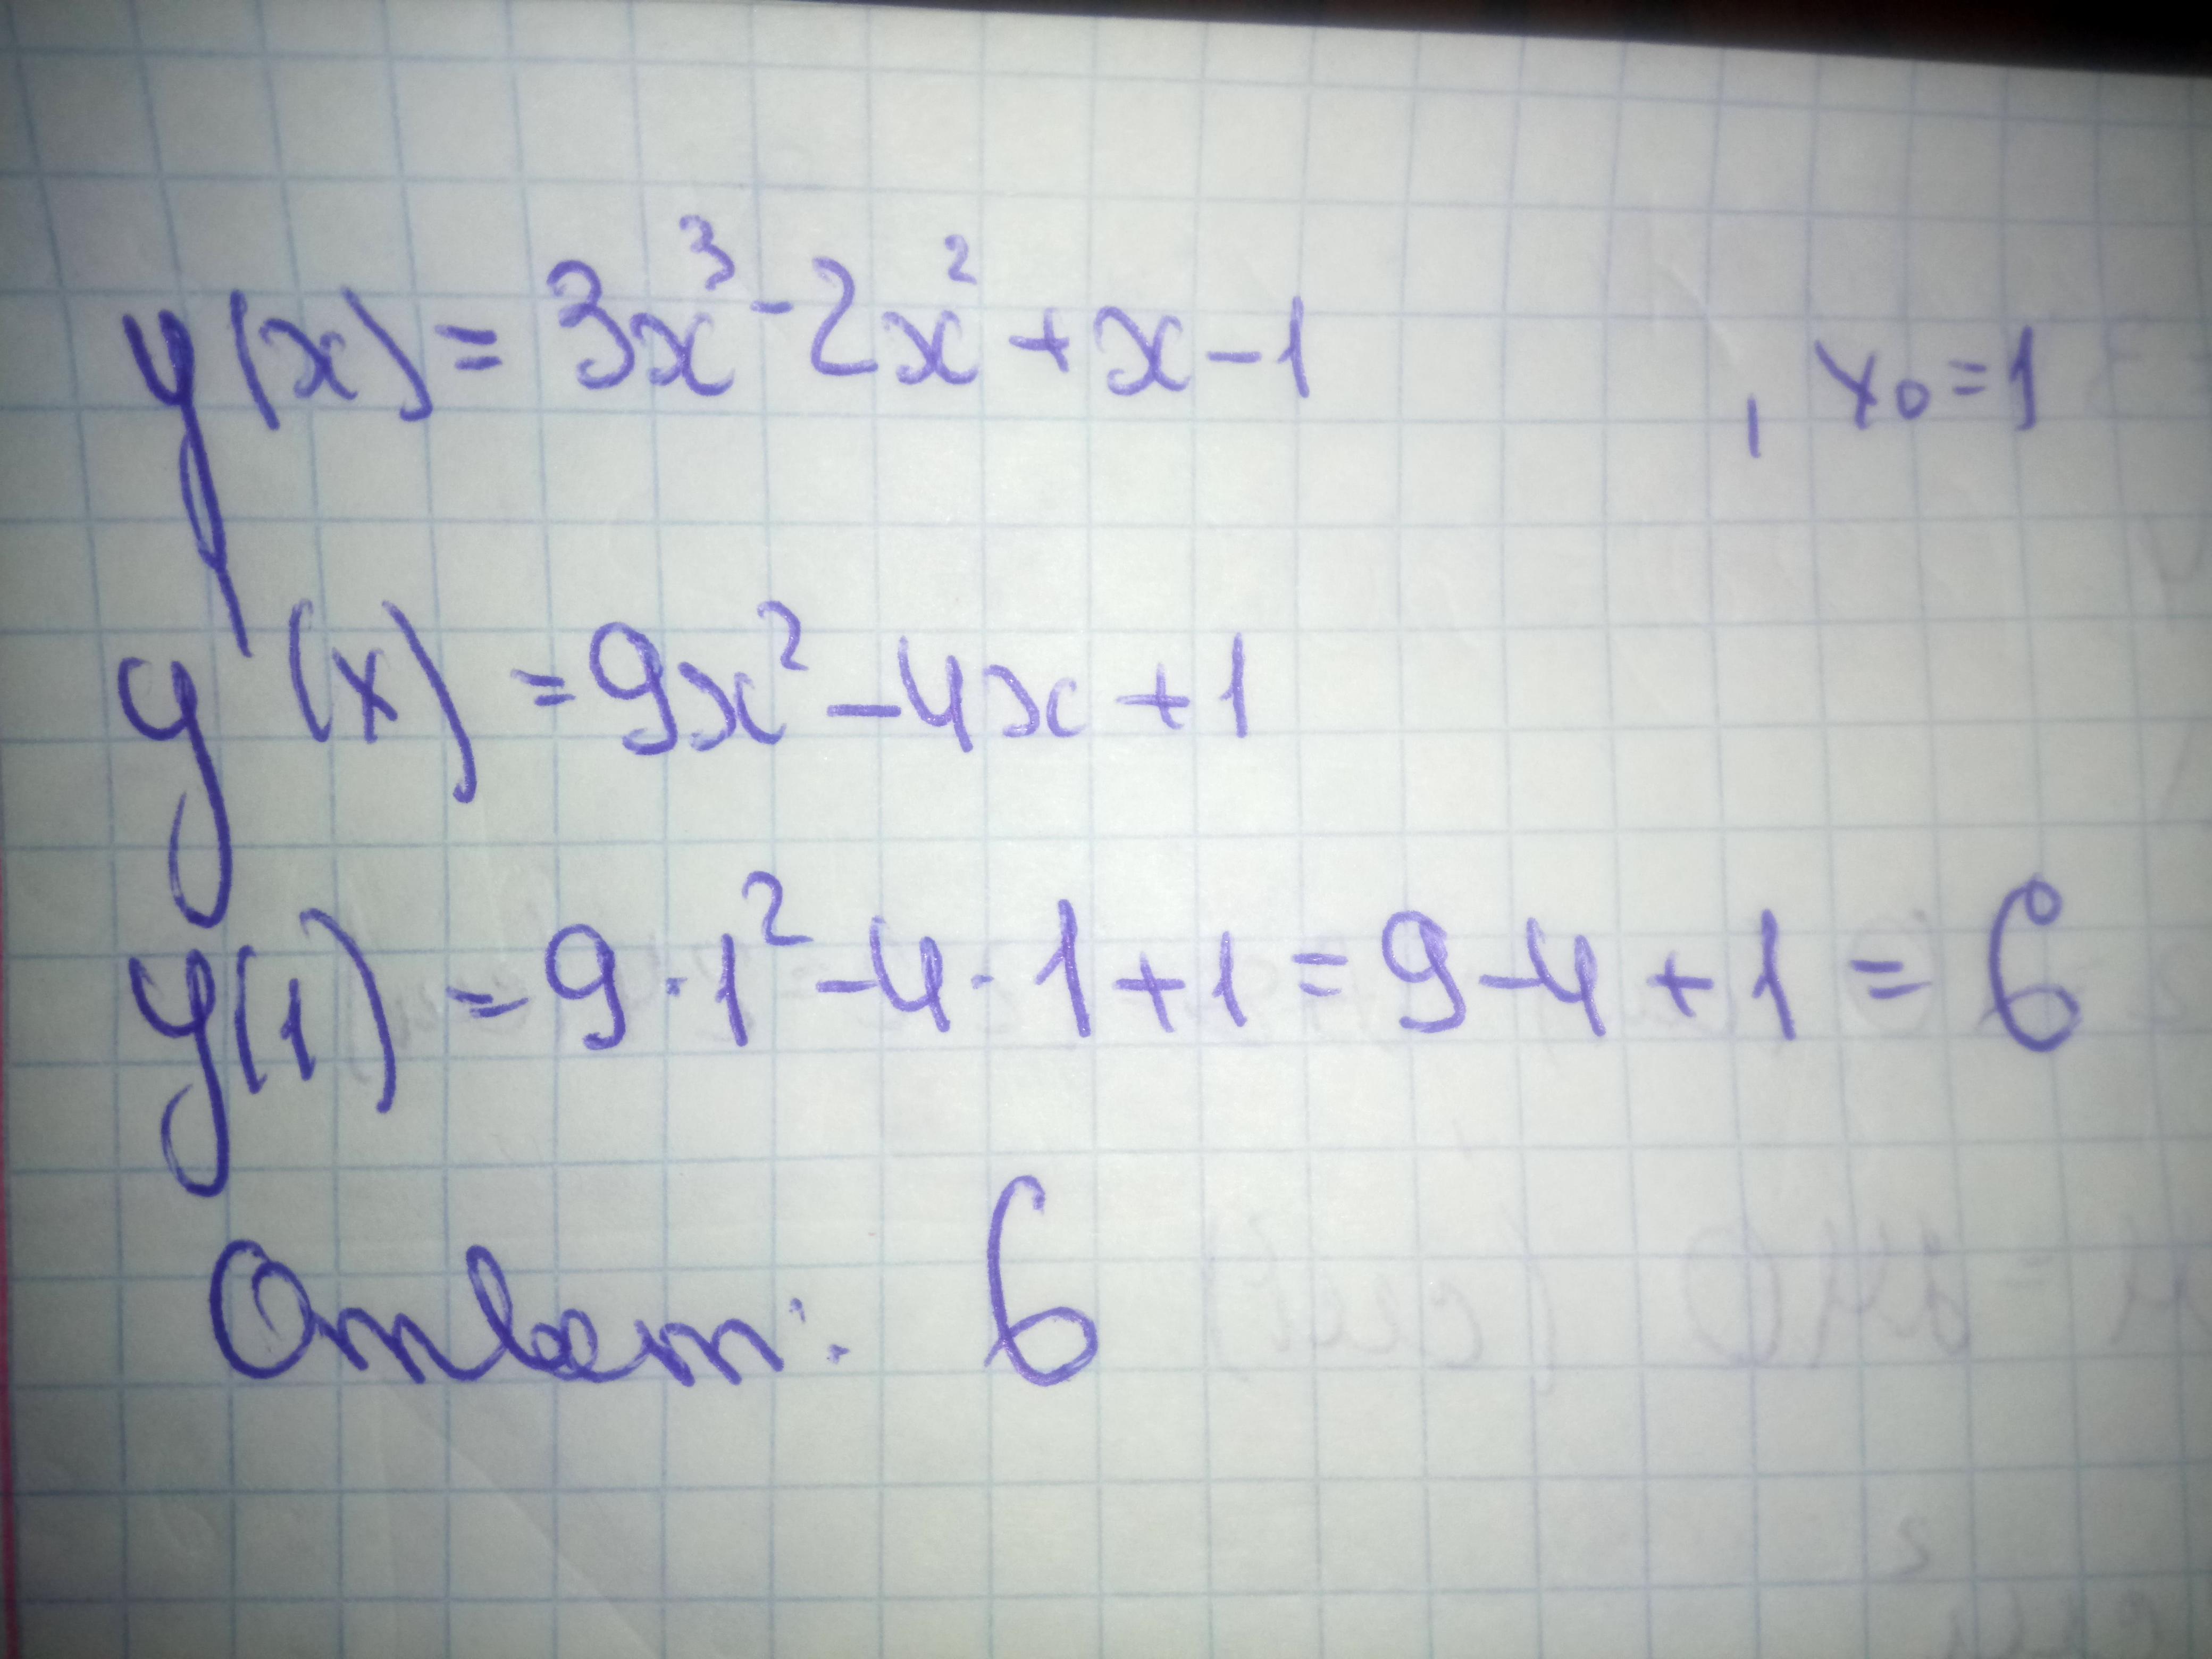 y(x) = 3x³ - 2x² + x - 1 , x₀ = 1
y'(x) = 9x² - 4x + 1
y(1) = 9 · 1² - 4 · 1 + 1 = 9 - 4 + 1 = 6
Ответ: 6